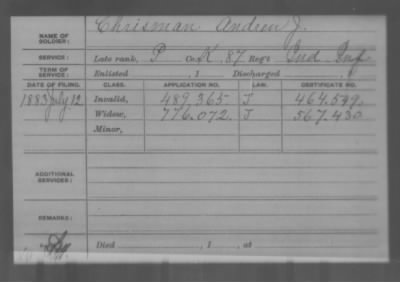 NAME OF SOLDIER: Chrisman Andrew J.
SERVICE: Late rank, P Co. K, 87 Reg't Ind Inf
TERM OF SERVICE: Enlisted , 1 Discharged , 1
DATE OF FILING. CLASS. APPLICATION NO. LAW. CERTIFICATE NO.
1883 July 12 Invalid, 489.365. J 464.599
Widow, 776.072. J 567.430
Minor,
ADDITIONAL SERVICES:
REMARKS:
Died , 1 , at